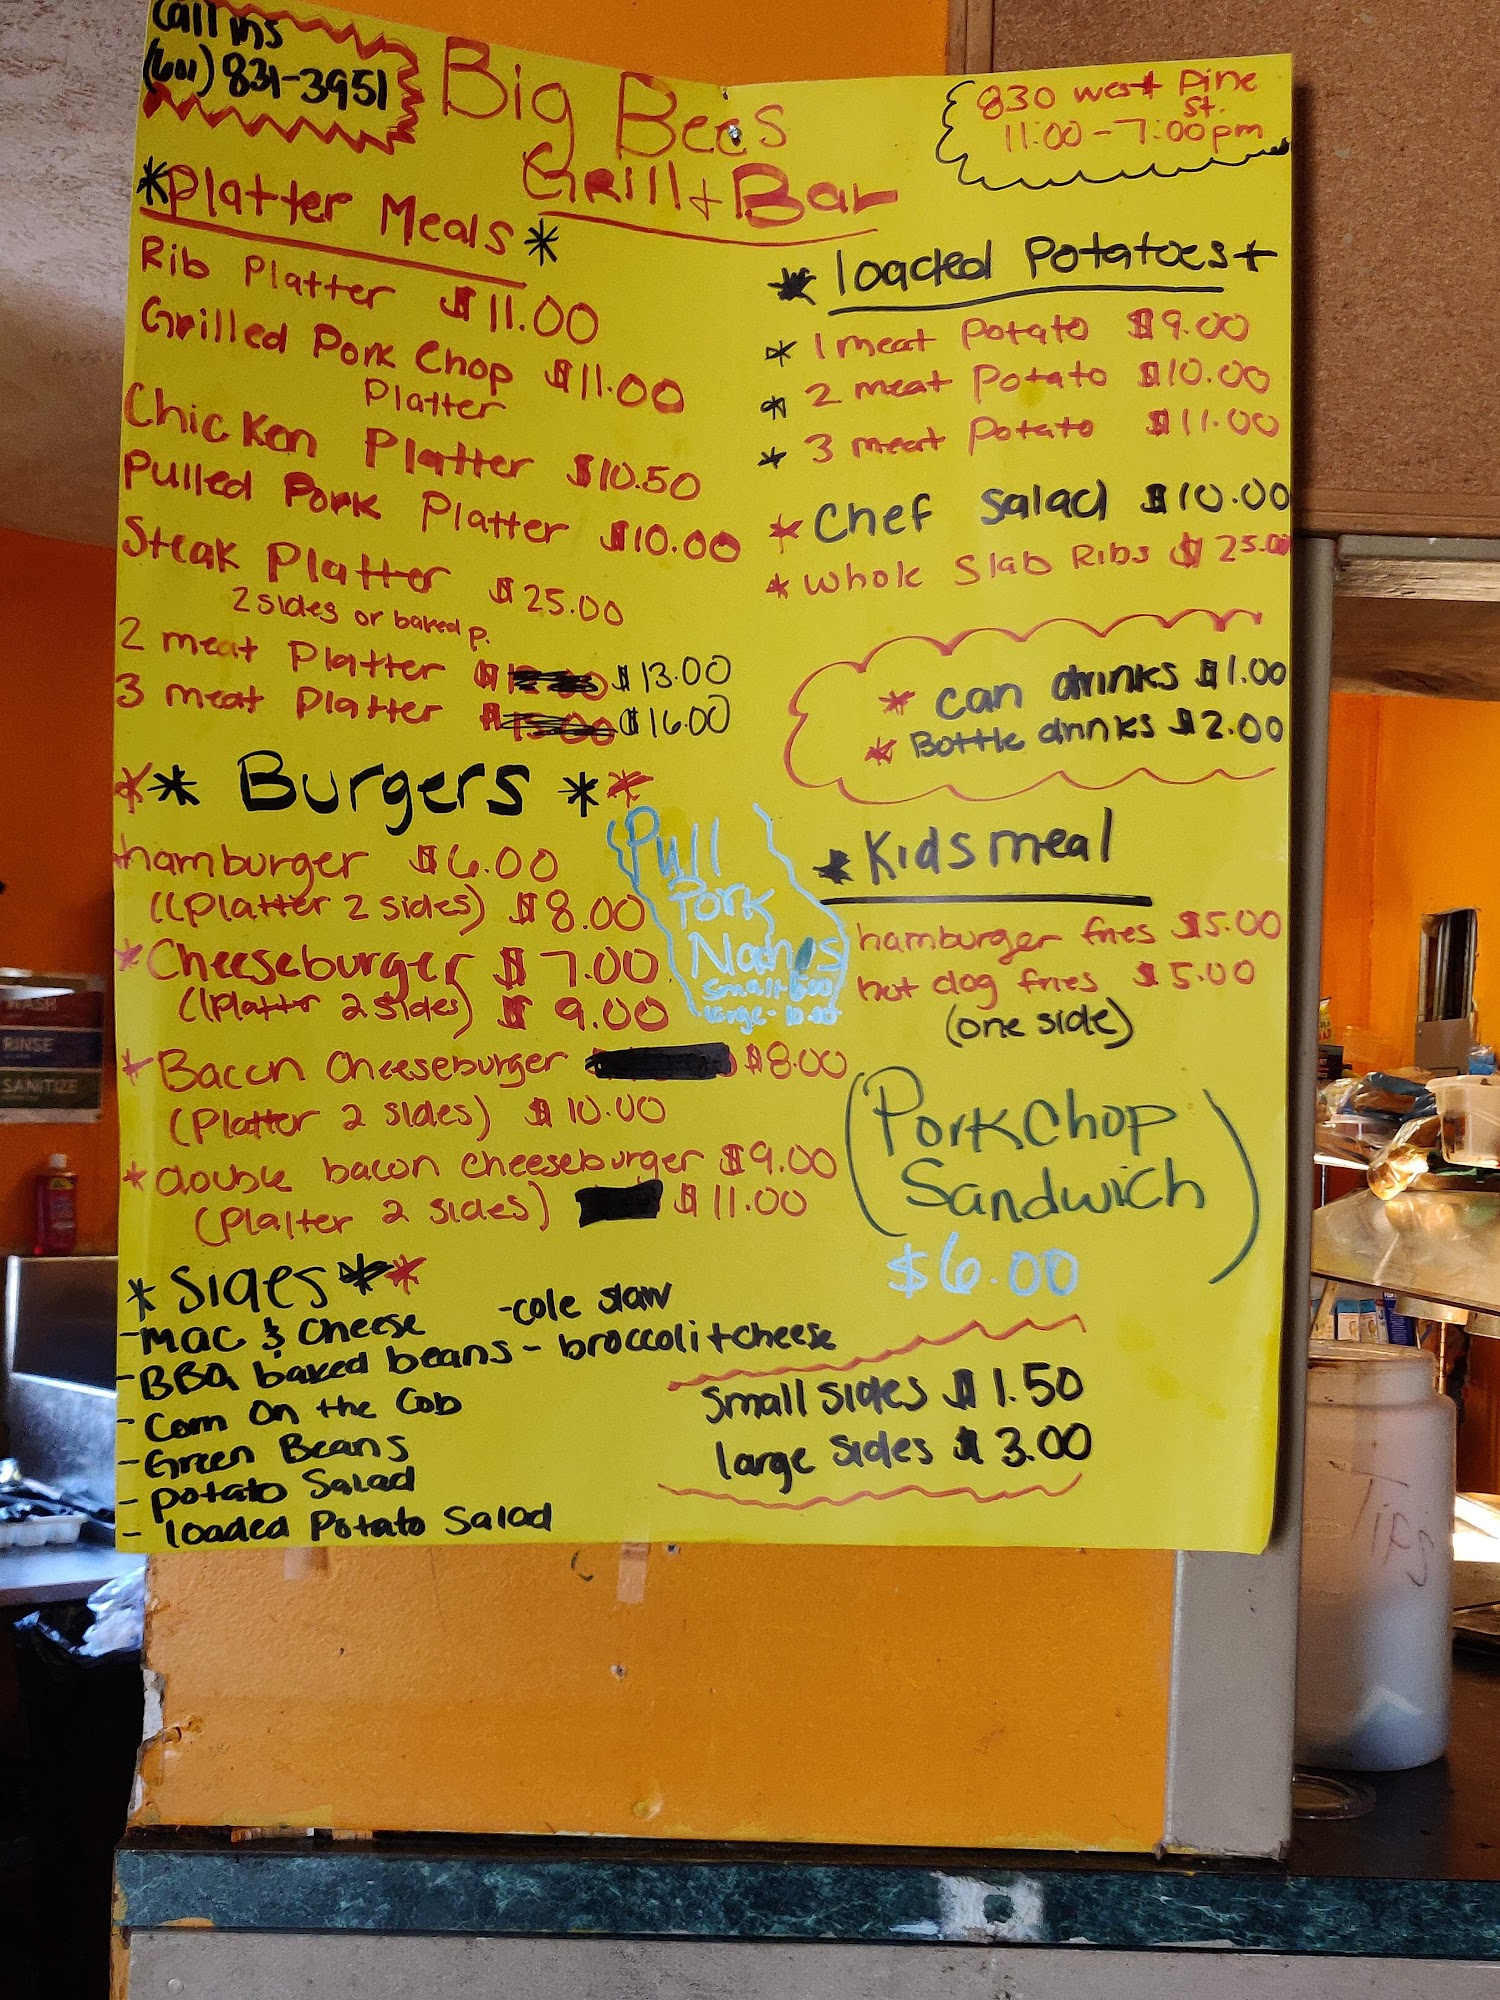 Call ins
(601) 831-3951
Big Bees
Grill + Bar
830 west Pine
St.
11:00-7:00pm
*Platter Meals*
Rib Platter $11.00
Grilled Pork Chop $11.00
Platter
Chicken Platter $10.50
Pulled Pork Platter $10.00
Steak Platter $25.00
2 sides or baked p.
2 meat Platter $13.00
3 meat Platter $16.00
** Burgers **
hamburger $6.00
((Platter 2 sides) $8.00
*Cheeseburger $7.00
((Platter 2 sides) $9.00
*Bacon Cheeseburger $8.00
(Platter 2 sides) $10.00
*double bacon cheeseburger $9.00
(Platter 2 sides) $11.00
Pull
Pork
Nachos
Small
large - 10.00
*Sides**
-Mac & Cheese
-cole slaw
-BBQ baked beans
-broccoli + cheese
-Corn On the Cob
-Green Beans
-potato Salad
-loaded Potato Salad
* loaded Potatoes +
* 1 meat Potato $9.00
* 2 meat Potato $10.00
* 3 meat Potato $11.00
* Chef Salad $10.00
* Whole Slab Ribs $25.00
* can drinks $1.00
* Bottle drinks $2.00
* Kids meal
hamburger fries $5.00
hot dog fries $5.00
(one side)
(Pork Chop
Sandwich)
$6.00
Small sides $1.50
large sides $3.00
WASH
RINSE
SANITIZE
Tips